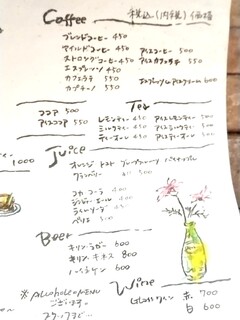 Coffee 税込(内税)価格
ブレンドコーヒー 450
マイルドコーヒー 450 アイスコーヒー 500
ストロングコーヒー 450 アイスカフェオレ 550
エスプレッソ 450
カフェラテ 550 エスプレッソアイスクリーム 600
カプチーノ 550
ココア 500
アイスココア 550
Tea
レモンティー 450 アイスレモンティー 500
ミルクティー 450 アイスミルクティー
1000
Juice
オレンジ トマト グレープフルーツ パイナップル
クランベリー 500
コカ コーラ 400
ジンジャーエール 400
Beer
キリンラガー 600
キリン 800
ハイネケン 600
Wine
Glassワイン 赤 700
白 600
※ALcohole MENU
ございます。
スタッフまで…